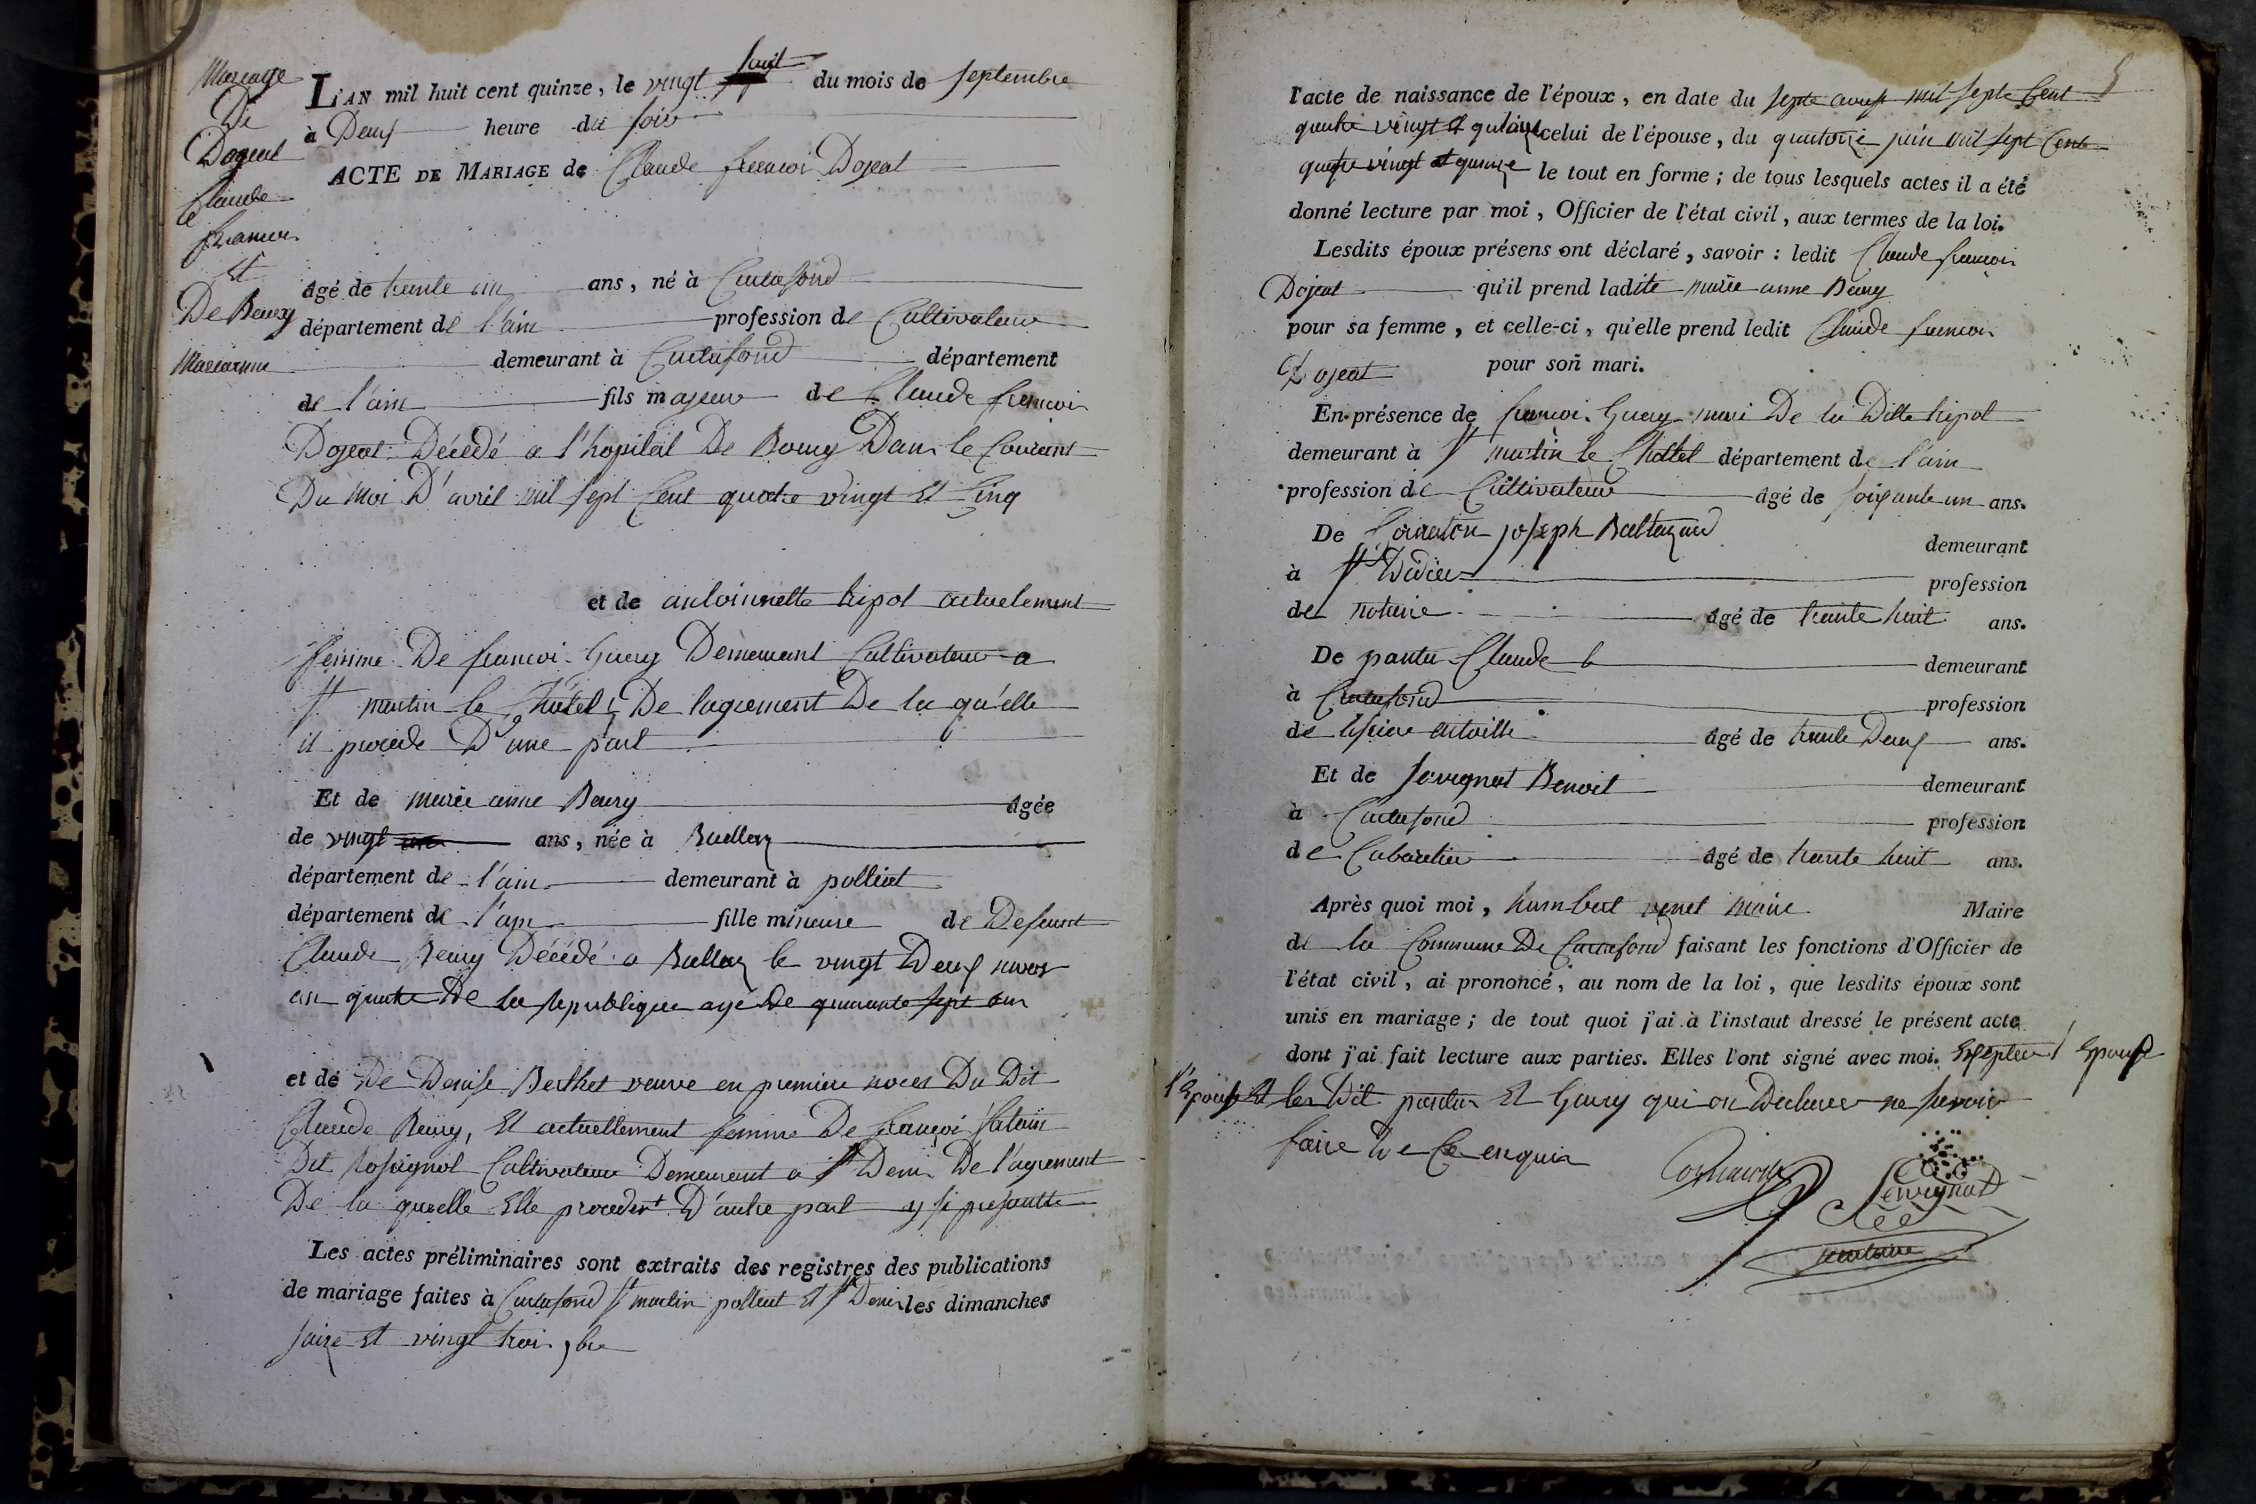 Mariage
De
Dojeat
Claude
francoi
Et
De Beury
Marianne
L'AN mil huit cent quinze, le vingt huit du mois de septembre
à Deux heure du soir
ACTE DE MARIAGE de Claude francoi Dojeat
âgé de trente un ans, né à Curtafond
département de l'ain profession de Cultivateur
demeurant à Curtafond département
de l'ain fils majeur de Claude francoi
Dojeat Décédé a l'hopital De Bourg Dans le Courant
Du moi D'avril mil sept Cent quatre vingt Et Cinq
et de antoinnette tripot actuelement
femme De francoi Guery Demeurant Cultivateur a
St martin le Châtel, De lagrement De la qu'elle
il procede D'une part
Et de marie anne Beury âgée
de vingt ans, née à Buellaz
département de l'ain demeurant à polliat
département de l'ain fille mineure de Defunt
Claude Beury Décédé a Buellaz le vingt Deux nivos
an quatre De la republique agé De quarante sept ans
et de De Denise Berthet veuve en premiere noces Du Dit
Claude Beury, Et actuellement femme De françoi
Dit Rosignol Cultivateur Demeurant a St Deni De l'agrement
De la quelle Elle procede D'autre part y si presante
Les actes préliminaires sont extraits des registres des publications
de mariage faites à Curtafond St martin polliat Et St Deni les dimanches
saize Et vingt troi 7bre
l'acte de naissance de l'époux, en date du sept aoust mil septe Cent
quatre vingt et quatre celui de l'épouse, du quatorze juin mil sept Cent
quatre vingt et quinze le tout en forme ; de tous lesquels actes il a été
donné lecture par moi, Officier de l'état civil, aux termes de la loi.
Lesdits époux présens ont déclaré, savoir : ledit Claude francoi
Dojeat qu'il prend ladite marie anne Beury
pour sa femme, et celle-ci, qu'elle prend ledit Claude francoi
Dojeat pour son mari.
En présence de francoi Guery mari De la Ditte tripot
demeurant à St martin le Chattel département de l'ain
profession de Cultivateur âgé de soixante un ans.
De Cornaton joseph Baltazard demeurant
à St Didier profession
de notaire âgé de trente huit ans.
De pantu Claude demeurant
à Curtafond profession
de âgé de trente Deux ans.
Et de Sevignat Benoit demeurant
à Curtafond profession
de Cabaretier âgé de trente huit ans.
Après quoi moi, humbert venet maire Maire
de la Commune De Curtafond faisant les fonctions d'Officier de
l'état civil, ai prononcé, au nom de la loi, que lesdits époux sont
unis en mariage ; de tout quoi j'ai à l'instant dressé le présent acte
dont j'ai fait lecture aux parties. Elles l'ont signé avec moi. Exceptée l'Epoux
l'Epouse Et les Dit pantu Et Guery qui on Declarer ne savoir
faire De Ce enquis
Cornaton
Sevignat
secretaire